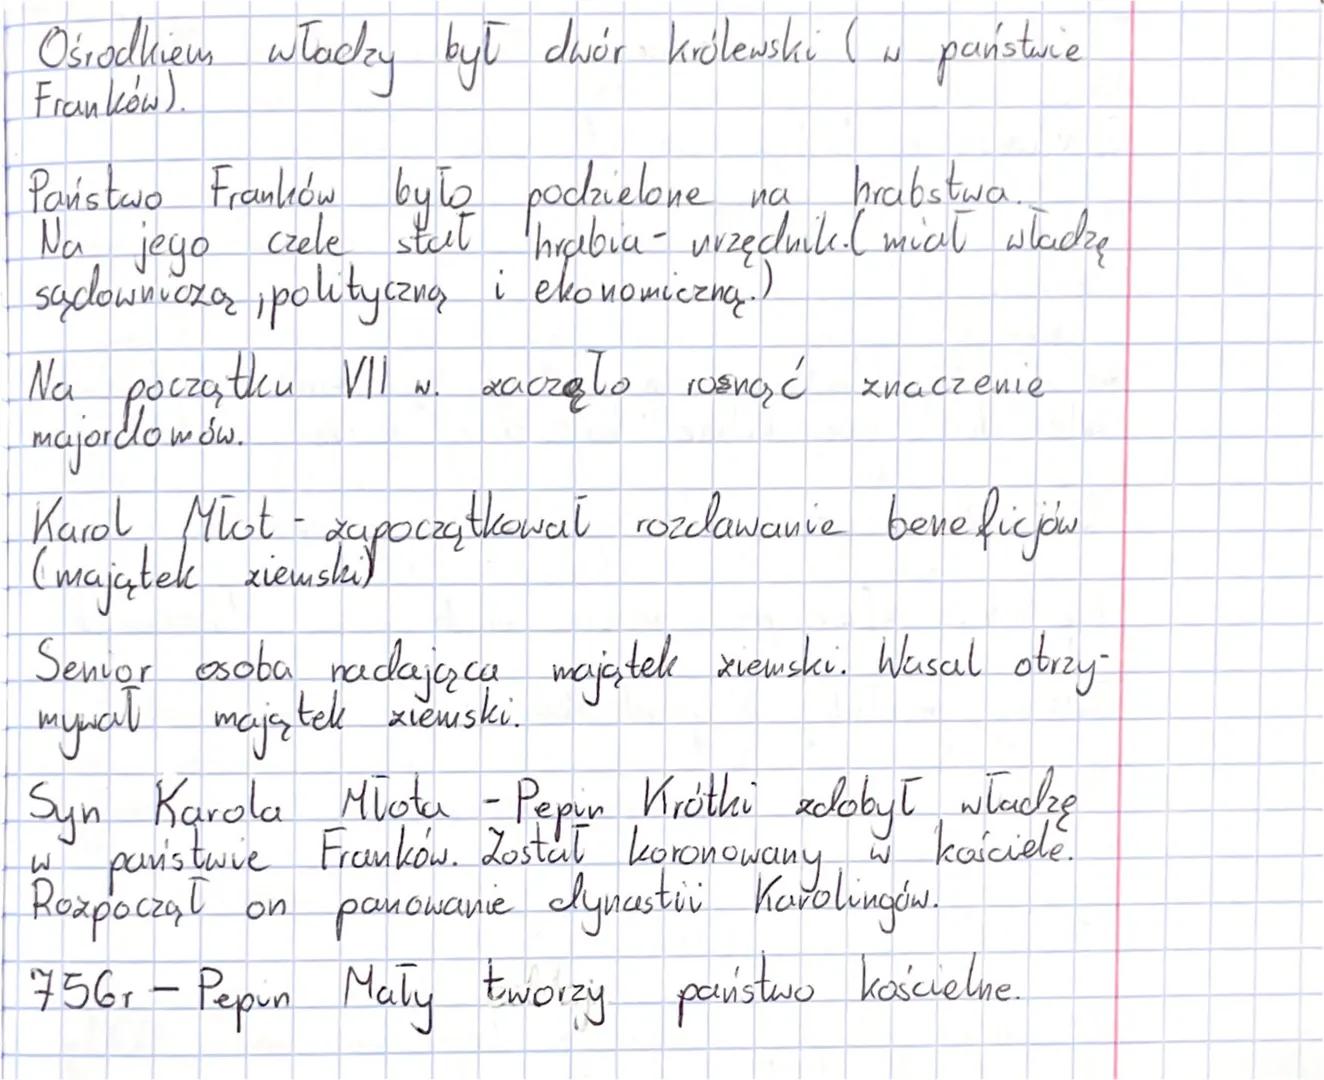 Ośrodkiem władzy był dwór królewski ( w państwie
Franków).
Państwo Franków było podzielone na hrabstwa.
Na jego czele stał hrabia - urzędnik.( miał władzę
sądowniczą , polityczną i ekonomiczną.)
Na początku VII w. zaczęło rosnąć znaczenie
majordomów.
Karol Młot - zapoczątkował rozdawanie beneficjów
(majątek ziemski)
Senior osoba nadająca majątek ziemski. Wasal otrzy-
mywał majątek ziemski.
Syn Karola Młota - Pepin Krótki zdobył władzę
w państwie Franków. Został koronowany w kościele.
Rozpoczął on panowanie dynastii Karolingów.
756r - Pepin Mały tworzy państwo kościelne.